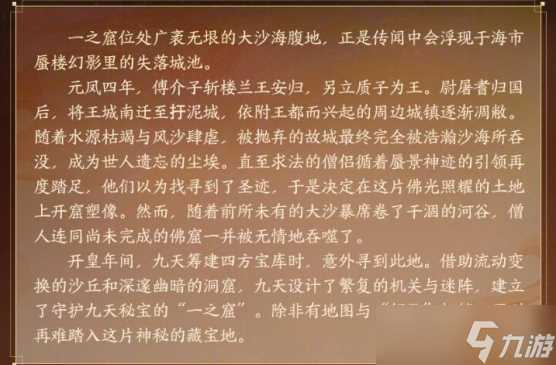 一之窟位处广袤无垠的大沙海腹地，正是传闻中会浮现于海市
蜃楼幻影里的失落城池。
元凤四年，傅介子斩楼兰王安归，另立质子为王。尉屠耆归国
后，将王城南迁至扜泥城，依附王都而兴起的周边城镇逐渐凋敝。
随着水源枯竭与风沙肆虐，被抛弃的故城最终完全被浩瀚沙海所吞
没，成为世人遗忘的尘埃。直至求法的僧侣循着蜃景神迹的引领再
度踏足，他们以为找寻到了圣迹，于是决定在这片佛光照耀的土地
上开窟塑像。然而，随着前所未有的大沙暴席卷了干涸的河谷，僧
人连同尚未完成的佛窟一并被无情地吞噬了。
开皇年间，九天筹建四方宝库时，意外寻到此地。借助流动变
换的沙丘和深邃幽暗的洞窟，九天设计了繁复的机关与迷阵，建立
了守护九天秘宝的“一之窟”。除非有地图与
再难踏入这片神秘的藏宝地。
九游